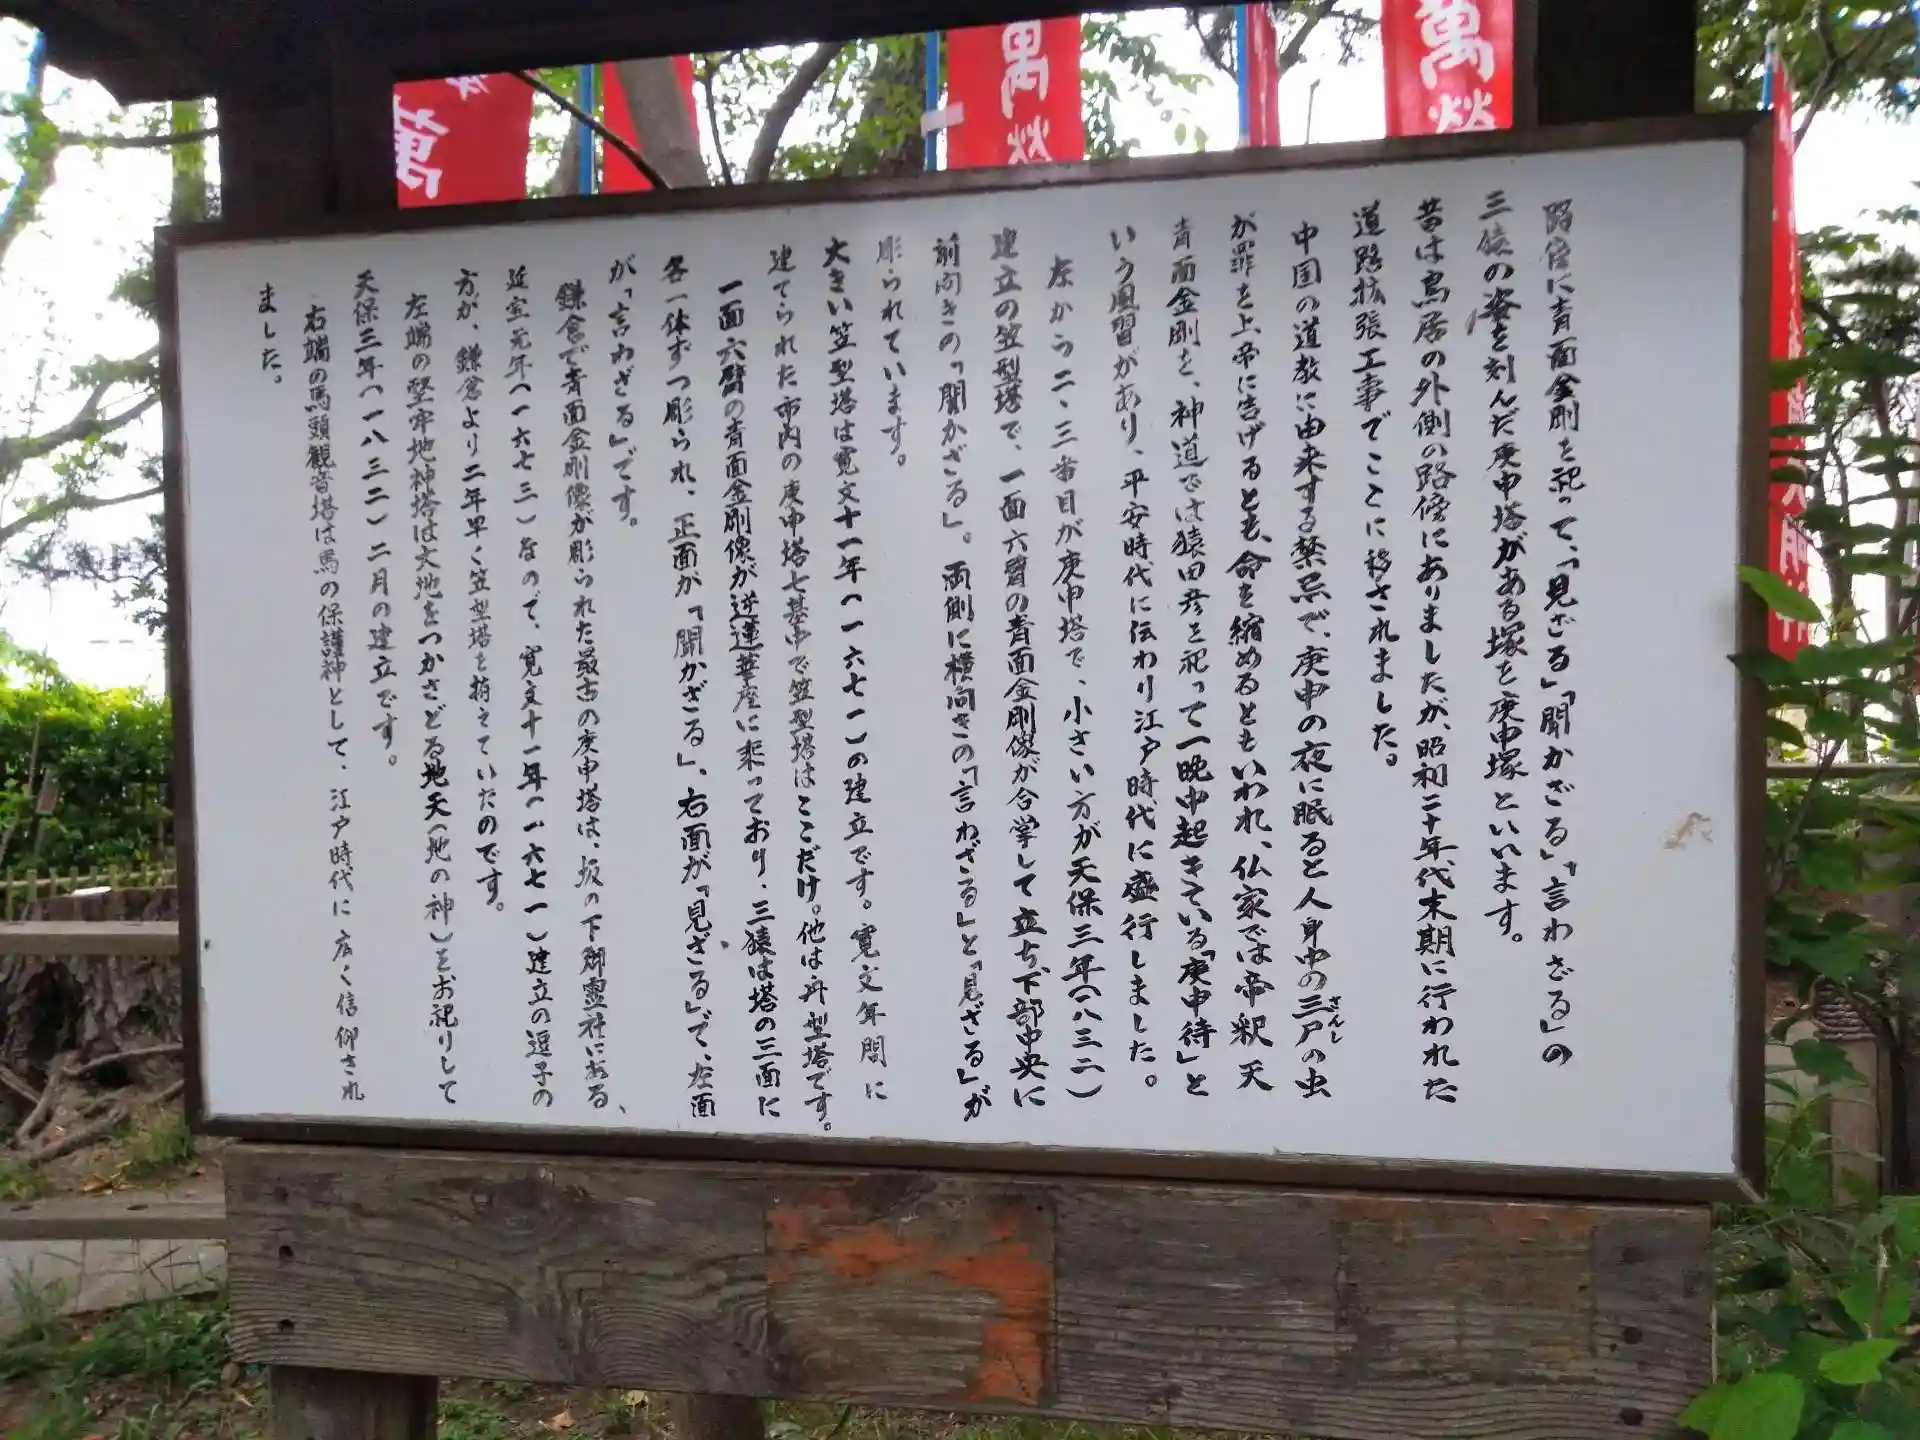 路傍に青面金剛を祀って、「見ざる」「聞かざる」「言わざる」の
三猿の姿を刻んだ庚申塔がある塚を庚申塚といいます。
昔は鳥居の外側の路傍にありましたが、昭和二十年代末期に行われた
道路拡張工事でここに移されました。
中国の道教に由来する禁忌で、庚申の夜に眠ると人身中の三尸の虫
さんし
が罪を上帝に告げるとも、命を縮めるともいわれ、仏家では帝釈天
青面金剛を、神道では猿田彦を祀って一晩中起きている「庚申待」と
いう風習があり、平安時代に伝わり江戸時代に盛行しました。
左から二、三番目が庚申塔で、小さい方が天保三年(一八三二)
建立の笠型塔で、一面六臂の青面金剛像が合掌して立ち、下部中央に
前向きの「聞かざる」。両側に横向きの「言わざる」と「見ざる」が
彫られています。
大きい笠型塔は寛文十一年(一六七一)の建立です。寛文年間に
建てられた市内の庚申塔七基中で笠型塔はここだけ。他は舟型塔です。
一面六臂の青面金剛像が逆蓮華座に乗っており、三猿は塔の三面に
各一体ずつ彫られ、正面が「聞かざる」、右面が「見ざる」で、左面
が「言わざる」です。
鎌倉で青面金剛像が彫られた最古の庚申塔は、坂の下御霊社にある、
延宝元年(一六七三)なので、寛文十一年(一六七一)建立の逗子の
方が、鎌倉より二年早く笠型塔を持っていたのです。
左端の堅牢地神塔は大地をつかさどる地天(地の神)をお祀りして
天保三年(一八三二)二月の建立です。
右端の馬頭観音塔は馬の保護神として、江戸時代に広く信仰され
ました。
萬
萬 燈
萬 燈
大明神